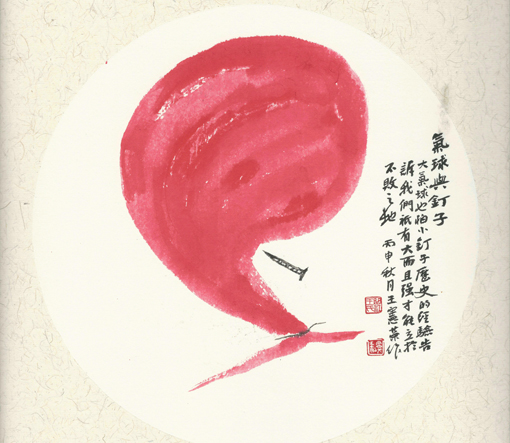 氣球與釘子
大氣球也怕小釘子歷史的經驗告
訴我們祇有大而且强才能立於
不敗之地 丙申秋月王憲榮作